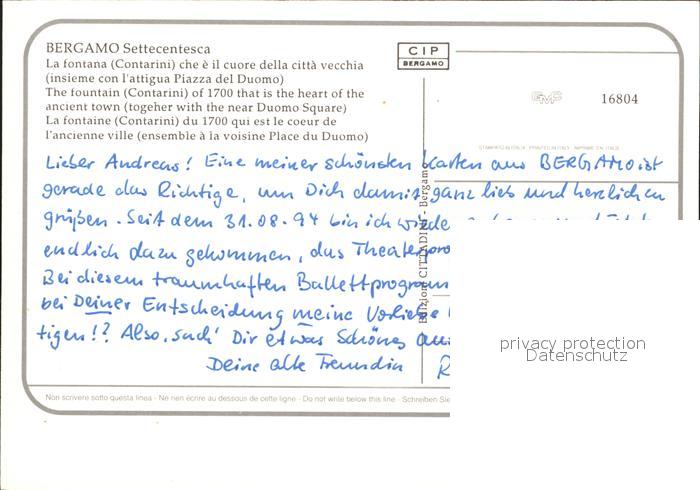 BERGAMO Settecentesca
La fontana (Contarini) che è il cuore della città vecchia
(insieme con l'attigua Piazza del Duomo)
The fountain (Contarini) of 1700 that is the heart of the
ancient town (togeher with the near Duomo Square)
La fontaine (Contarini) du 1700 qui est le coeur de
l'ancienne ville (ensemble à la voisine Place du Duomo)
CIP
BERGAMO
GMC
16804
STAMPATO IN ITALIA - PRINTED IN ITALY - IMPRIME EN ITALIE
Edizioni CITTADINI - Bergamo
Lieber Andreas! Eine meiner schönsten Karten aus BERGAMO ist
gerade das Richtige, um Dich damit ganz lieb und herzlich zu
grüßen. Seit dem 31.08.94 bin ich wieder
endlich dazu gekommen, das Theaterpro
Bei diesem traumhaften Ballettprogramm
bei Deiner Entscheidung meine Vorliebe
tigen!? Also, such' Dir etwas Schönes aus
Deine alte Freundin R
Non scrivere sotto questa linea - Ne rien écrire au dessous de cette ligne - Do not write below this line - Schreiben Sie
privacy protection
Datenschutz